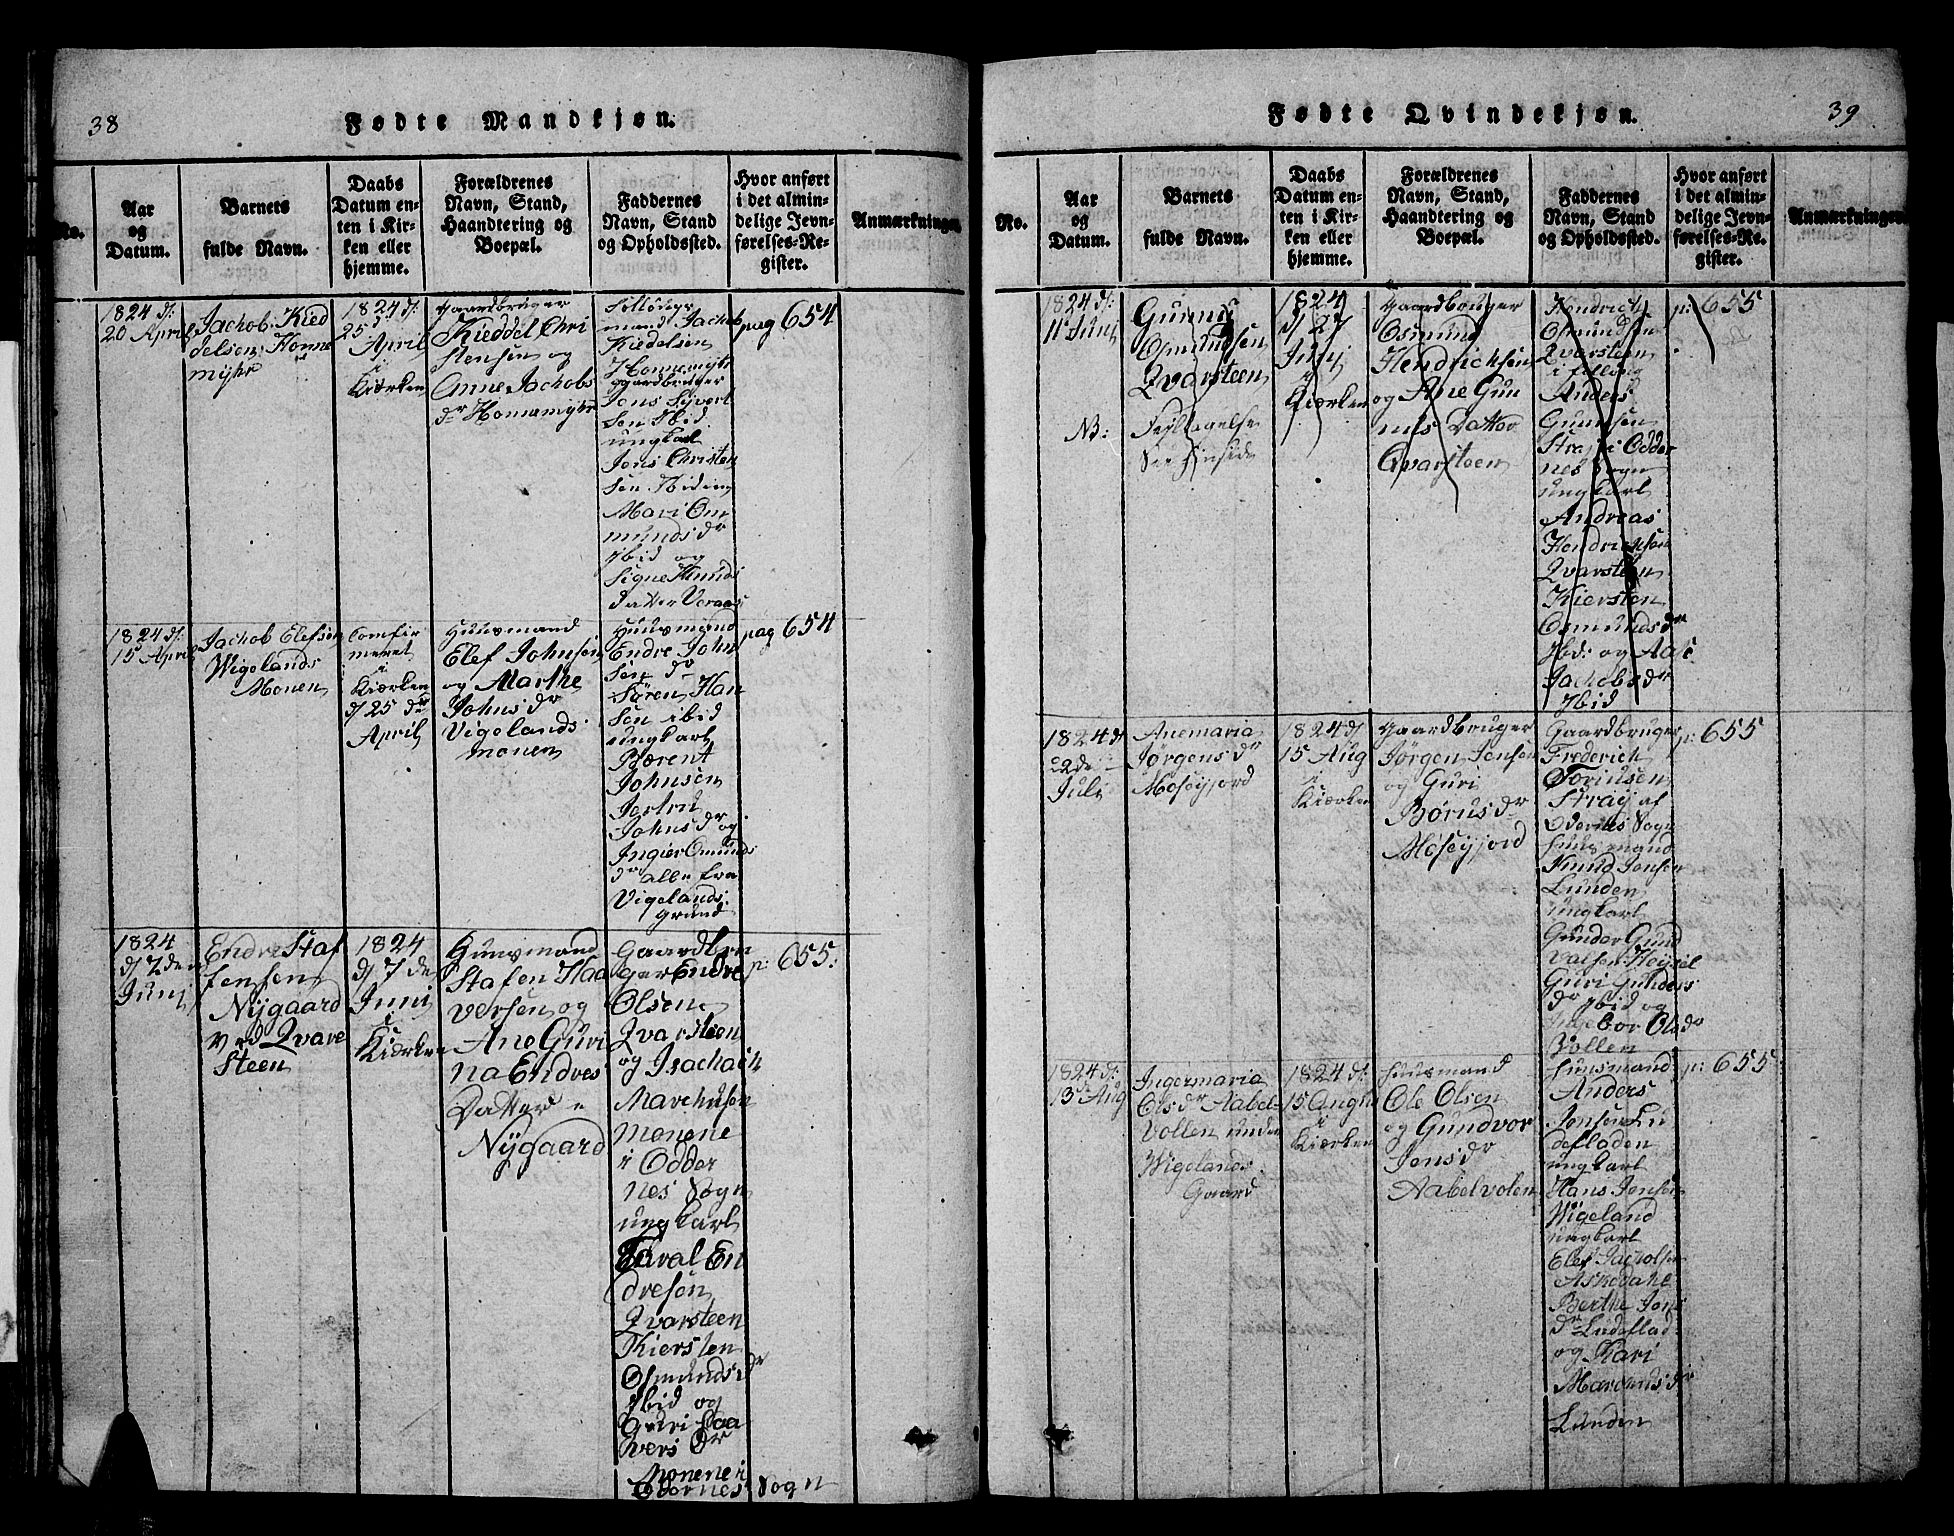 38
Fødte Mandkjøn.
No.
Aar
og
Datum.
Barnets
fulde Navn.
Daabs
Datum en-
ten i Kir-
ken eller
hjemme.
Forældrenes
Navn, Stand,
Haandtering og
Boepæl.
Faddernes
Navn, Stand
og Opholdssted.
Hvor anført
i det almin-
delige Jevn-
førelses-Re-
gister.
Anmærkninger.
1824 d:
20 April
Jachob Kied
delsen Honne
myhr
1824 d:
25 d
April
i
Kiærken
Gaardbruger
Kieddel Chri
stensen og
Anne Jachobs
dr Honnemyhr
mand Jachob
Kiedelsen
Honnemyhr
gaardbruger
Jens Syvert
sen Ibid
ungkarl
Jens Christen
sen Ibidem
Mari Om
munds dr
Ibid og
Signe
datter Veraas
pag 654
1824 d:
15 April
Jachob Elefsen
Wigelands
Monen
Comfir
meret
i
Kiærken
d/ 25 de
April
Huusmand
Elef Johnsen
og Marthe
Johns dr
Vigelands
monen
Huusmand
Endre John
sen
Søren Han
sen ibid
ungkarl
Bærent
Johnsen
Jertru
Johns dr og
Ingier Omunds
dr alle fra
Vigelands
grund
pag 654
1824
d/ 7 den
Junj
Endre Staf
fensen
Nygaard
ved Qvare
steen
1824
d/ 7 de
Junni
i
Kiærken
Huusmand
Stafen Haa
versen og
Ane Guri
na Endres
Datter
Nygaard
Gaardbru
ger Endre
Olsen
Qvarsteen
og Isachach
Marchusen
Monene
i Odder
nes Sogn
ungkarl
Taral En
dresen
Qvarsteen
Kiersten
Osmunds dr
Ibid og
Guri Haa
vers dr
Monene i
Oddernes Sogn
p: 655:
39
Fødte Qvindekjøn.
No.
Aar
og
Datum.
Barnets
fulde Navn.
Daabs
Datum en-
ten i Kir-
ken eller
hjemme.
Forældrenes
Navn, Stand,
Haandtering og
Boepæl.
Faddernes
Navn, Stand
og Opholdssted.
Hvor anført
i det almin-
delige Jevn-
førelses-Re-
gister.
Anmærkninger.
1824 d:
11 Junj
Osmundsen
Qvarsteen
NB:
1824
d/ 27
Junj
i
Kiærken
Gaardbruger
Osmund
Hendrichsen
og Ane Gun
nuls Datter
Qvarsteen
Hendrich
Osmundsen
Qvarsteen
Anders
Gunnsen
Stray i Odder
nes Sogn
ungkarl
Andreas
Hendrichsen
Qvarsteen
Kiersten
Osmunds dr
Ibd: og Aase
Jachobs dr
Ibid
p: 655
1824 d/
22 de
Juli
Anemaria
Jørgens dr
Møseyjord
1824 d/
15 Aug
i
Kiærken
Gaardbruger
Jørgen Jensen
og Guri
Børius dr
Møseyjord
Gaardbruger
Frederich
Toriusen
Stray af
Odernes Sogn
huusmand
Knud Jensen
Lunden
ungkarl
Gunder Gund
valsen
Guri Gunders
dr Ibid og
Ingebor Ols dr
Vollen
p: 655
1824 d:
13 Aug
Ingermaria
Ols dr Aabel-
vollen under
Wigelands
Gaard
1824 d:
15 August
i
Kiærken
Huusmand
Ole Olsen
og Gundvor
Jens dr
Aabelvolen
huusmand
Anders
Jensen Lu
defladen
ungkarl
Hans Jensen
Wigeland
ungkarl
Elef Jacholsen
Askedahl
Berthe Jens
dr Ludeflad
og Kari
Marcuus dr
Lunden
p: 655